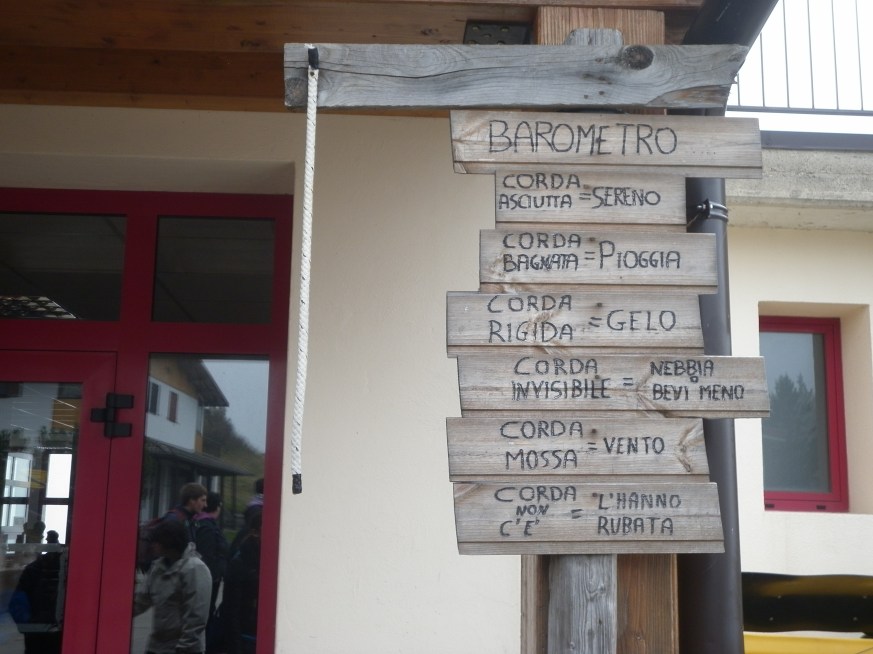 BAROMETRO
CORDA
ASCIUTTA = SERENO
CORDA
BAGNATA = PIOGGIA
CORDA
RIGIDA = GELO
CORDA
INVISIBILE = NEBBIA
O
BEVI MENO
CORDA
MOSSA = VENTO
CORDA
NON
C'E' = L'HANNO
RUBATA